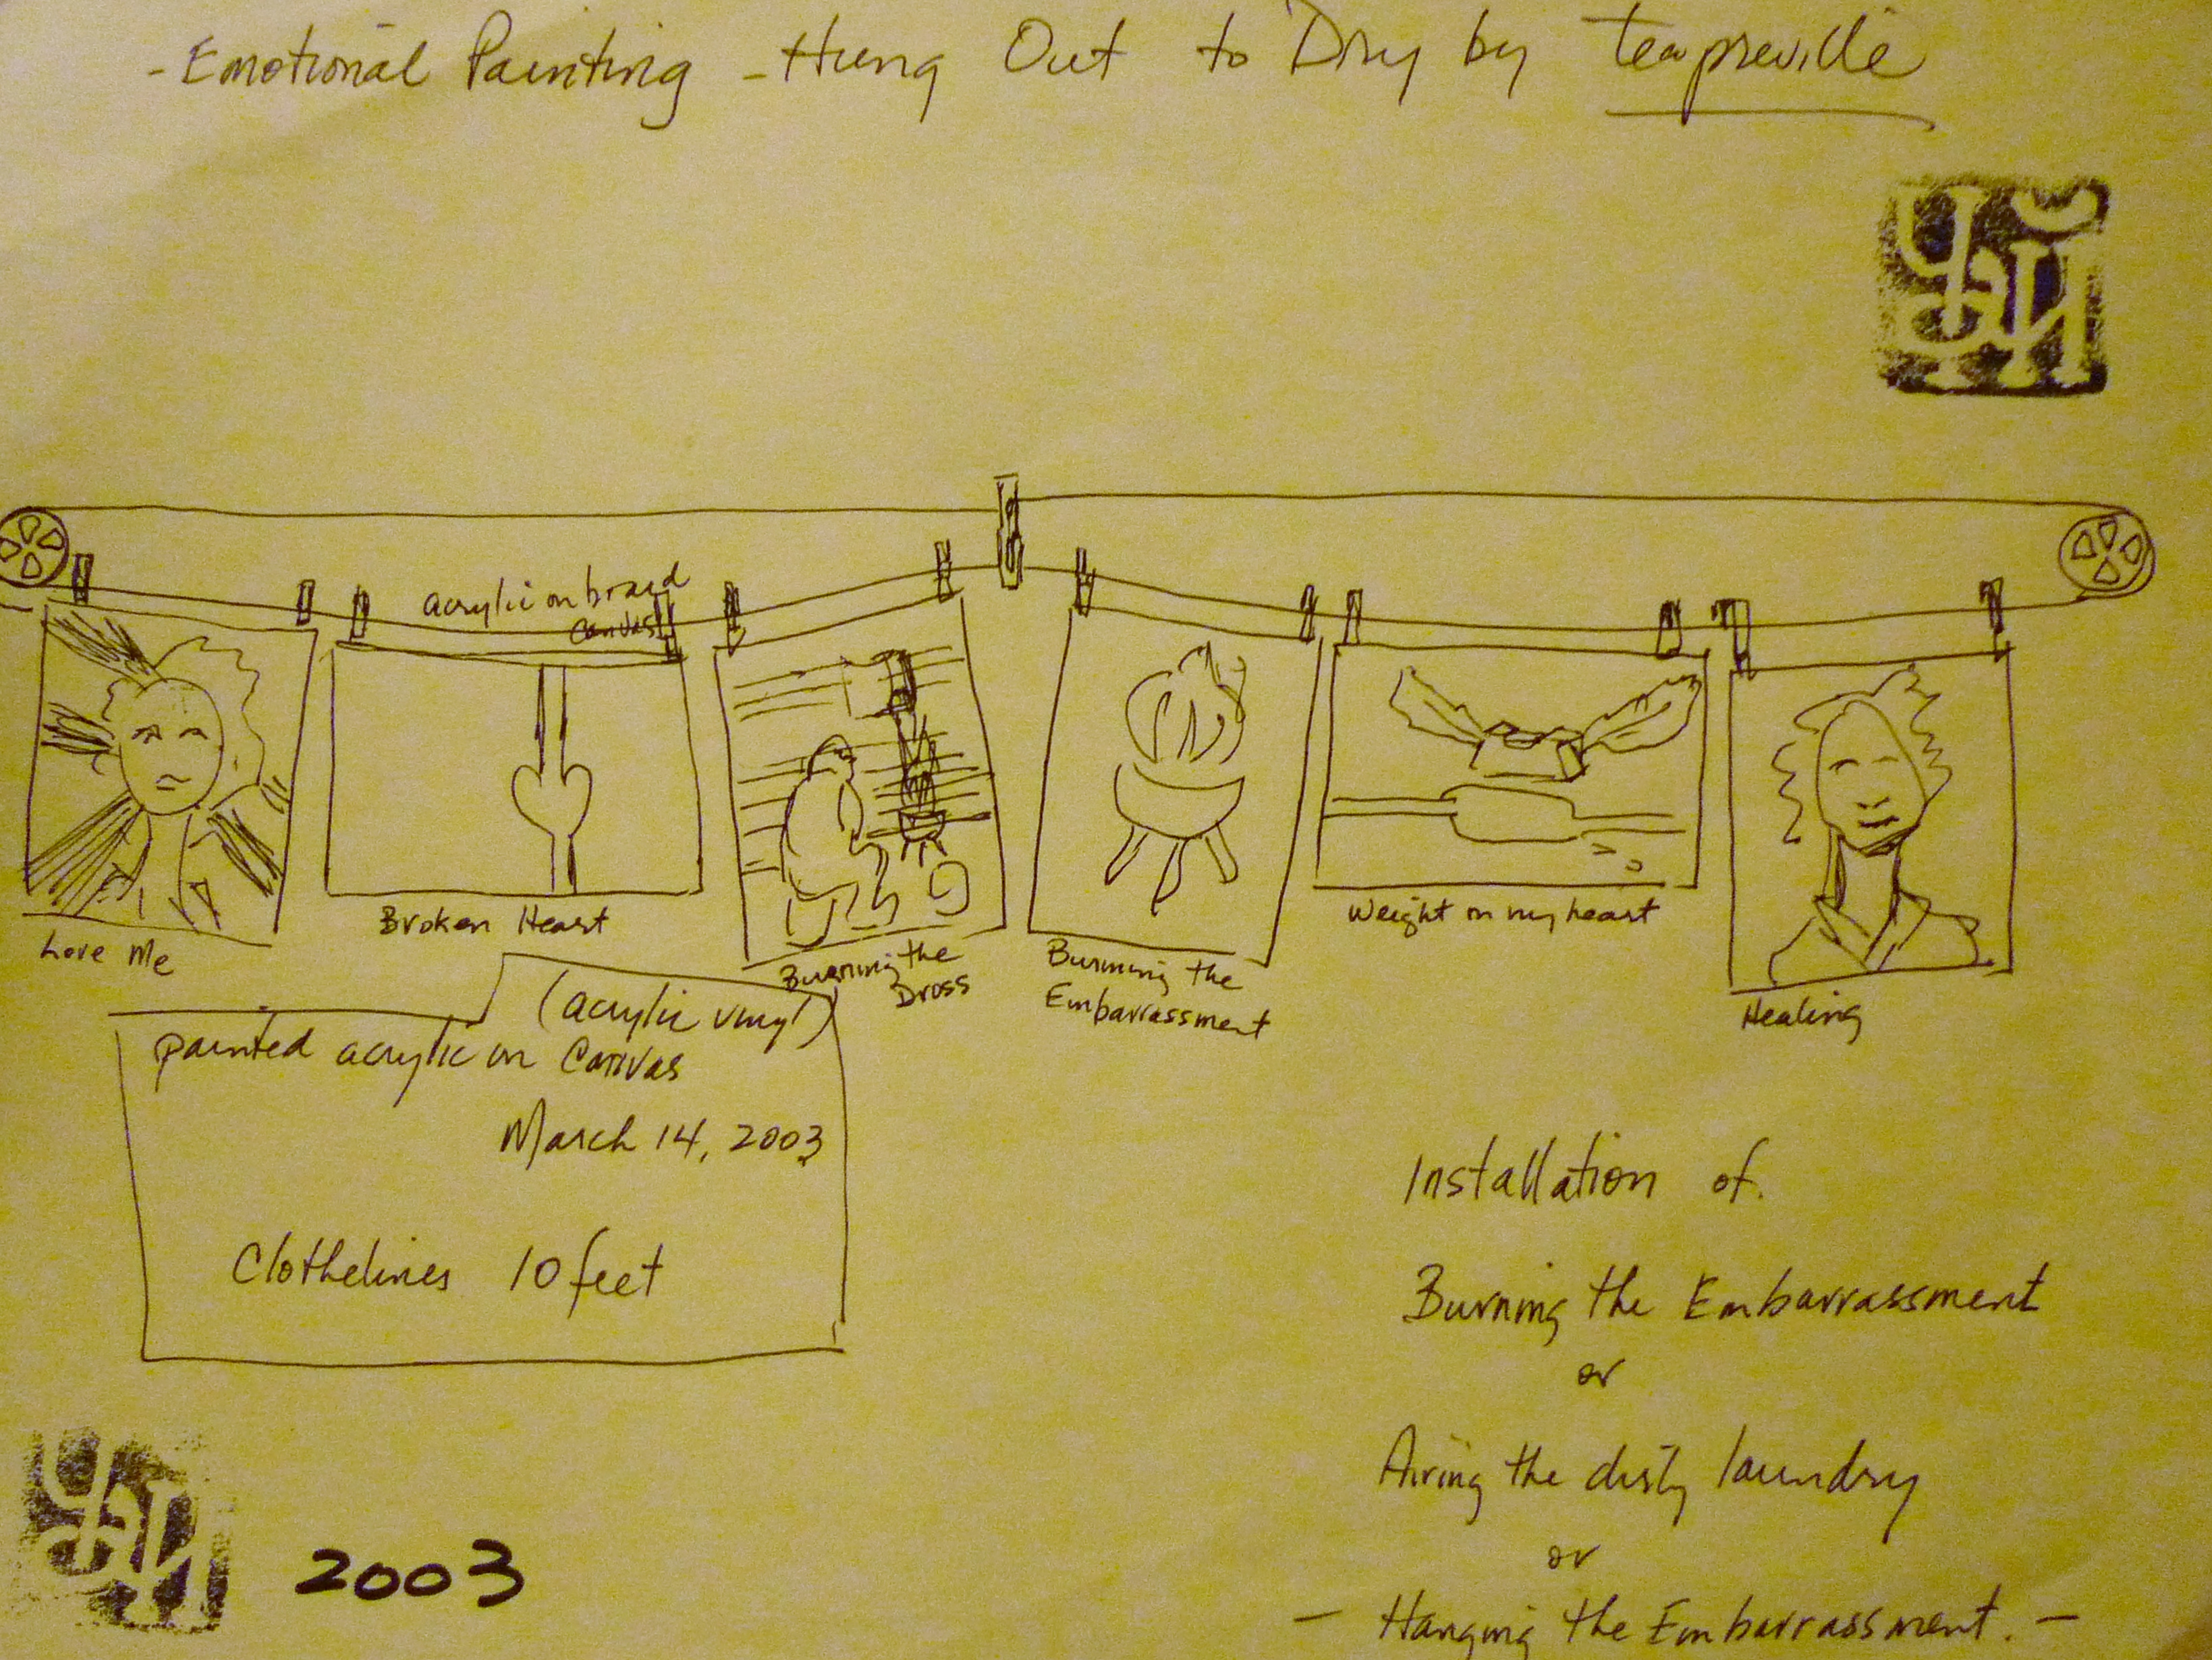 - Emotional Painting - Hung Out to Dry by teapreville
acrylic on braed
canvas
Love Me
Broken Heart
Burning the
Dross
Burning the
Embarrassment
Weight on my heart
Healing
(acrylic vinyl)
painted acrylic on Canvas
March 14, 2003
Clothelines 10 feet
Installation of.
Burning the Embarrassment
or
Airing the dirty laundry
or
- Hanging the Embarrassment. -
2003